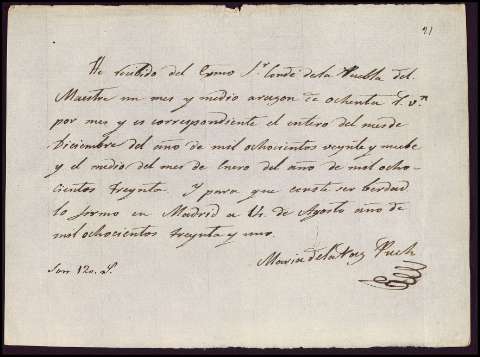 21
He recibido del Exmo Sr. Conde de la Puebla del
Maestre un mes y medio a razon de ochenta r. vn
por mes y es correspondiente el entero del mes de
Diciembre del año de mil ochocientos veynte y nuebe
y el medio del mes de Enero del año de mil ocho-
cientos treynta. Y para que conste ser berdad
lo firmo en Madrid a de Agosto año de
mil ochocientos treynta y uno.
Maria de la Paz Puch
Son 120. r.